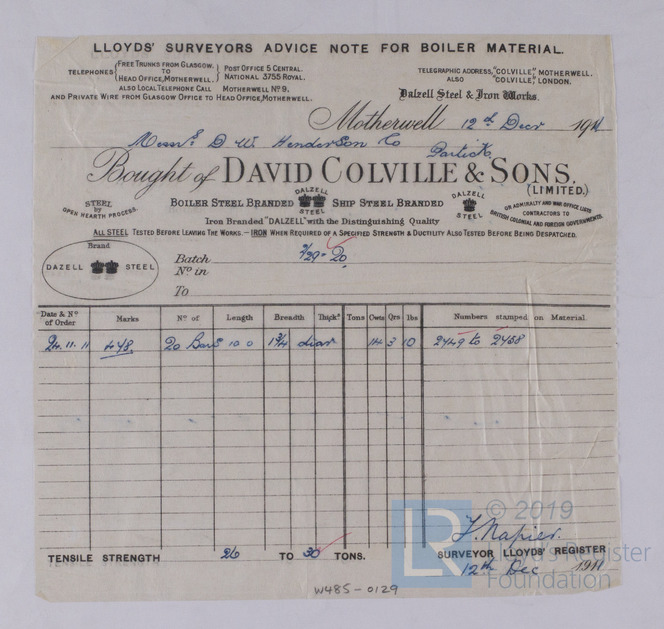 LLOYDS' SURVEYORS ADVICE NOTE FOR BOILER MATERIAL.
TELEPHONES { FREE TRUNKS FROM GLASGOW. TO HEAD OFFICE, MOTHERWELL. } POST OFFICE 5 CENTRAL. NATIONAL 3755 ROYAL.
ALSO LOCAL TELEPHONE CALL MOTHERWELL Nº 9.
AND PRIVATE WIRE FROM GLASGOW OFFICE TO HEAD OFFICE, MOTHERWELL.
TELEGRAPHIC ADDRESS, "COLVILLE", MOTHERWELL.
ALSO "COLVILLE", LONDON.
Dalzell Steel & Iron Works.
Motherwell 12th Decr 1911
Messrs D W Henderson Co
Partick
Bought of DAVID COLVILLE & SONS,
(LIMITED.)
STEEL by OPEN HEARTH PROCESS.
BOILER STEEL BRANDED DALZELL STEEL SHIP STEEL BRANDED DALZELL STEEL
ON ADMIRALTY AND WAR OFFICE LISTS
CONTRACTORS TO
BRITISH COLONIAL AND FOREIGN GOVERNMENTS.
Iron Branded "DALZELL" with the Distinguishing Quality
ALL STEEL TESTED BEFORE LEAVING THE WORKS. – IRON WHEN REQUIRED OF A SPECIFIED STRENGTH & DUCTILITY ALSO TESTED BEFORE BEING DESPATCHED.
Brand
DAZELL STEEL
Batch
Nº in
To
Date & Nº of Order Marks Nº of Length Breadth Thickˢ Tons Cwts Qrs lbs Numbers stamped on Material
24.11.11 448. 20 Bars 10 0 1¾ diar 14 3 10 2449 to 2468
© 2019
Lloyd's Register
Foundation
LR
J. Napier.
TENSILE STRENGTH 26 TO 30 TONS.
SURVEYOR LLOYDS' REGISTER
12th Dec 1911
W485-0129